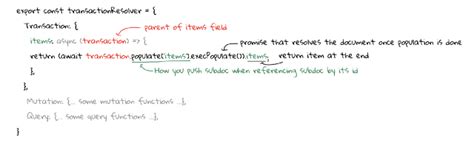 export const transactionResolver = {
Transaction: { parent of items field
items: async (transaction) => {
promise that resolves the document once population is done
return (await transaction.populate('items').execPopulate()).items; return item at the end
}, How you push subdoc when referencing subdoc by its id
},
Mutation: {... some mutation functions ...},
Query: {... some query functions ...},
}